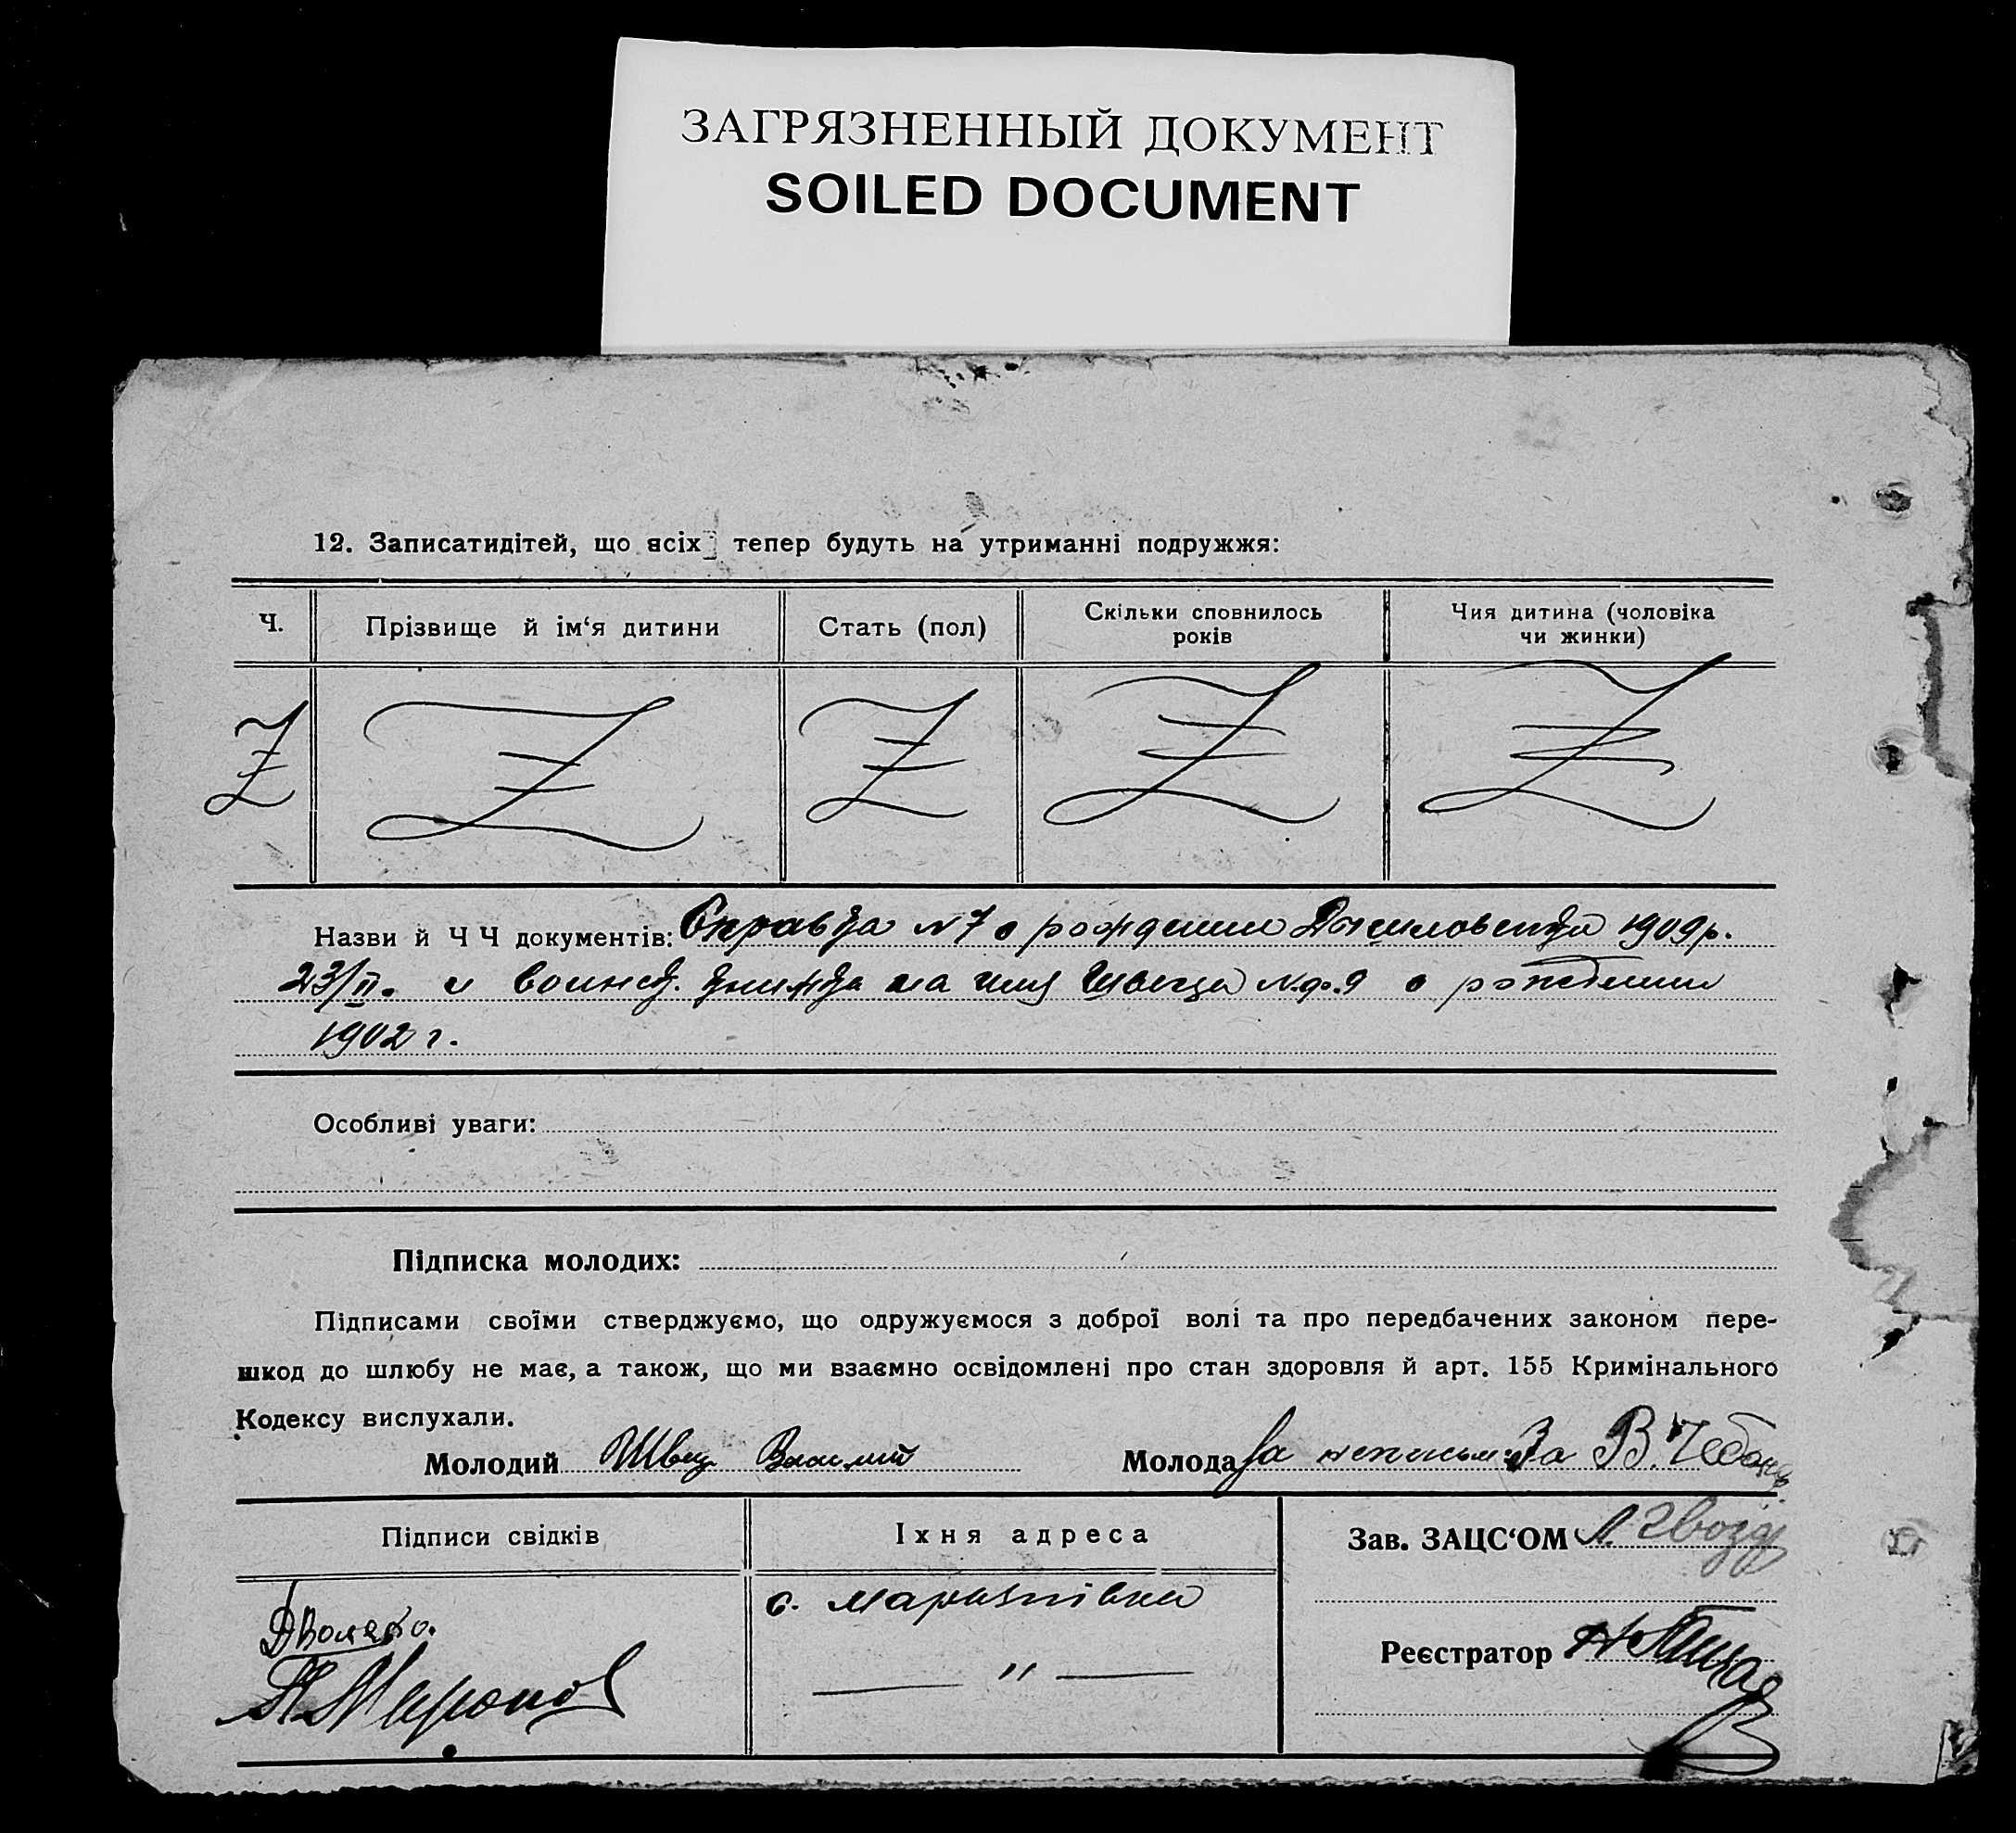 ЗАГРЯЗНЕННЫЙ ДОКУМЕНТ
SOILED DOCUMENT
12. Записатидітей, що всіх тепер будуть на утриманні подружжя:
Ч.
Прізвище й ім‘я дитини
Стать (пол)
Скільки сповнилось
років
Чия дитина (чоловіка
чи жинки)
Назви й Ч Ч документів: Справка N 7 о рождении 1909 р.
23/II. и воинск. книжка на имя Швеца о рождении
1902 г.
Особливі уваги:
Підписка молодих:
Підписами своїми стверджуємо, що одружуємося з доброї волі та про передбачених законом пере-
шкод до шлюбу не має, а також, що ми взаємно освідомлені про стан здоровля й арт. 155 Кримінального
Кодексу вислухали.
Молодий Швец Василий Молода За В. Чебан
Підписи свідків
Їхня адреса
Зав. ЗАЦС‘ОМ
с.
"
Реєстратор